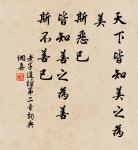 天下皆知美之為
美
斯惡已
皆知善之為善
斯不善已
老子道德經第二章詞典
網集